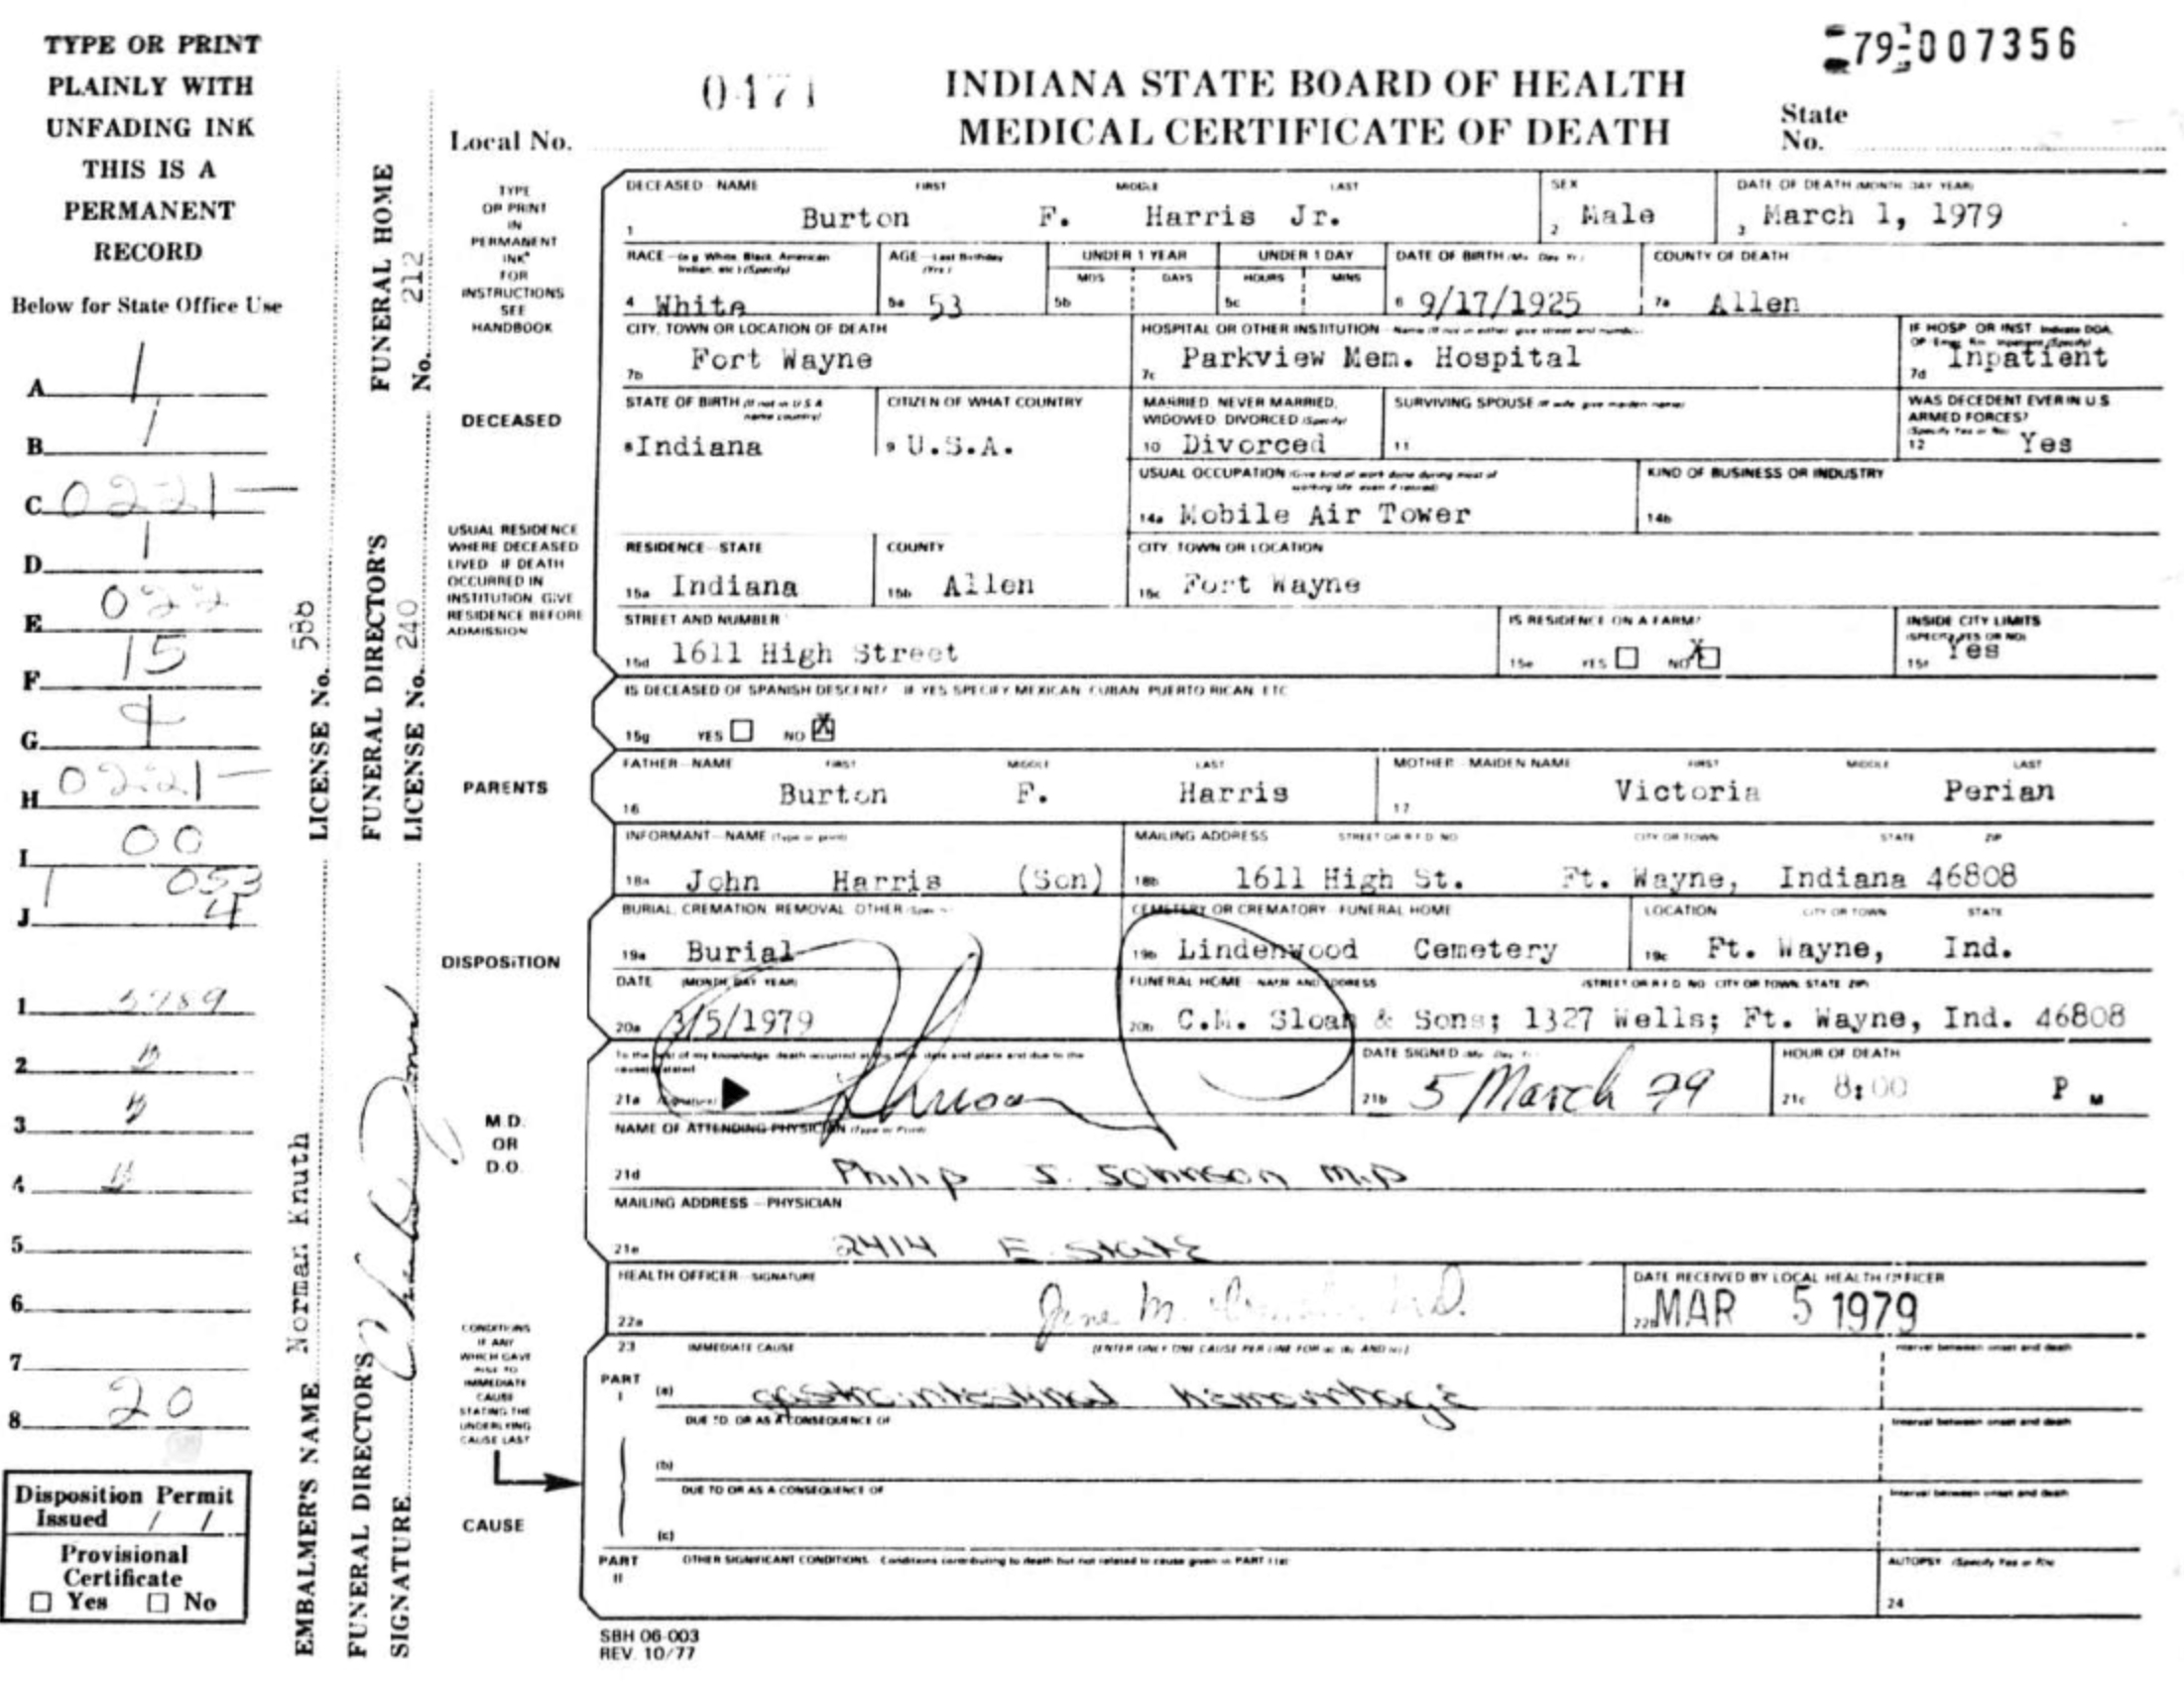 TYPE OR PRINT
PLAINLY WITH
UNFADING INK
THIS IS A
PERMANENT
RECORD
Below for State Office Use
A 1
B 1
C 0221-
D 1
E 022
F 15
G
H 0221-
I 00
1 053
J 4
1 5789
2
3
4
5
6
7
8 20
Disposition Permit
Issued / /
Provisional
Certificate
☐ Yes ☐ No
EMBALMER'S NAME Norman Knuth LICENSE No. 588
FUNERAL DIRECTOR'S FUNERAL DIRECTOR'S FUNERAL HOME
SIGNATURE LICENSE No. 240 No. 212
79-007356
0471 INDIANA STATE BOARD OF HEALTH
Local No. MEDICAL CERTIFICATE OF DEATH State
No.
TYPE
OR PRINT
IN
PERMANENT
INK
FOR
INSTRUCTIONS
SEE
HANDBOOK
DECEASED - NAME FIRST MIDDLE LAST SEX DATE OF DEATH (MONTH DAY YEAR)
1 Burton F. Harris Jr. 2 Male 3 March 1, 1979
RACE - (e.g. White, Black, American Indian, etc.) (Specify) AGE - Last Birthday (Yrs.) UNDER 1 YEAR UNDER 1 DAY DATE OF BIRTH (Mo. Day Yr.) COUNTY OF DEATH
MOS DAYS HOURS MINS
4 White 5a 53 5b 5c 6 9/17/1925 7a Allen
CITY, TOWN OR LOCATION OF DEATH HOSPITAL OR OTHER INSTITUTION - Name (If not in either give street and number) IF HOSP OR INST Indicate DOA,
7b Fort Wayne 7c Parkview Mem. Hospital 7d Inpatient
DECEASED
STATE OF BIRTH (If not in U S A name country) CITIZEN OF WHAT COUNTRY MARRIED, NEVER MARRIED, WIDOWED, DIVORCED (Specify) SURVIVING SPOUSE (If wife give maiden name) WAS DECEDENT EVER IN U S ARMED FORCES? (Specify Yes or No)
8 Indiana 9 U.S.A. 10 Divorced 11 12 Yes
USUAL OCCUPATION (Give kind of work done during most of working life even if retired) KIND OF BUSINESS OR INDUSTRY
14a Mobile Air Tower 14b
USUAL RESIDENCE
WHERE DECEASED
LIVED IF DEATH
OCCURRED IN
INSTITUTION GIVE
RESIDENCE BEFORE
ADMISSION
RESIDENCE - STATE COUNTY CITY TOWN OR LOCATION
15a Indiana 15b Allen 15c Fort Wayne
STREET AND NUMBER IS RESIDENCE ON A FARM? INSIDE CITY LIMITS (SPECIFY YES OR NO)
15d 1611 High Street 15e YES ☐ NO ☒ 15f Yes
IS DECEASED OF SPANISH DESCENT? IF YES SPECIFY MEXICAN CUBAN PUERTO RICAN ETC
15g YES ☐ NO ☒
PARENTS
FATHER - NAME FIRST MIDDLE LAST MOTHER - MAIDEN NAME FIRST MIDDLE LAST
16 Burton F. Harris 17 Victoria Perian
INFORMANT - NAME (Type or print) MAILING ADDRESS STREET OR R F D NO CITY OR TOWN STATE ZIP
18a John Harris (Son) 18b 1611 High St. Ft. Wayne, Indiana 46808
DISPOSITION
BURIAL, CREMATION REMOVAL OTHER CEMETERY OR CREMATORY - FUNERAL HOME LOCATION CITY OR TOWN STATE
19a Burial 19b Lindenwood Cemetery 19c Ft. Wayne, Ind.
DATE (MONTH DAY YEAR) FUNERAL HOME - NAME AND ADDRESS (STREET OR R F D NO CITY OR TOWN STATE ZIP)
20a 3/5/1979 20b C.M. Sloan & Sons; 1327 Wells; Ft. Wayne, Ind. 46808
M.D.
OR
D.O.
To the best of my knowledge death occurred at the time date and place and due to the cause(s) stated DATE SIGNED (Mo. Day Yr.) HOUR OF DEATH
21a (Signature) 21b 5 March 79 21c 8:00 P M
NAME OF ATTENDING PHYSICIAN (Type or Print)
21d Philip S. Johnson M.D
MAILING ADDRESS - PHYSICIAN
21e 2414 E. State
HEALTH OFFICER - SIGNATURE DATE RECEIVED BY LOCAL HEALTH OFFICER
22a Jane M. M.D. 22b MAR 5 1979
CONDITIONS
IF ANY
WHICH GAVE
RISE TO
IMMEDIATE
CAUSE
STATING THE
UNDERLYING
CAUSE LAST
CAUSE
23 IMMEDIATE CAUSE (ENTER ONLY ONE CAUSE PER LINE FOR (a) (b) AND (c)) Interval between onset and death
PART I (a) gastrointestinal hemorrhage
DUE TO, OR AS A CONSEQUENCE OF Interval between onset and death
(b)
DUE TO OR AS A CONSEQUENCE OF Interval between onset and death
(c)
PART II OTHER SIGNIFICANT CONDITIONS - Conditions contributing to death but not related to cause given in PART I (a) AUTOPSY (Specify Yes or No)
24
SBH 06-003
REV. 10/77